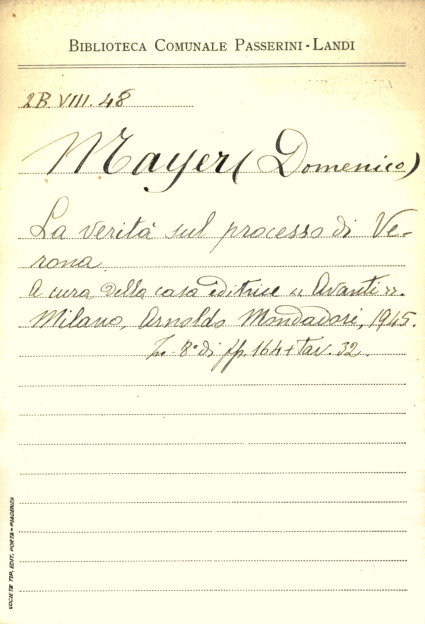 BIBLIOTECA COMUNALE PASSERINI-LANDI
2B VIII. 48
Mayer (Domenico)
La verità sul processo di Ve-
rona.
A cura della casa editrice « Avanti ».
Milano, Arnoldo Mondadori, 1945.
In-8° di pp. 164 + tav. 32.
SOCIETÀ TIP. EDIT. PORTA - PIACENZA